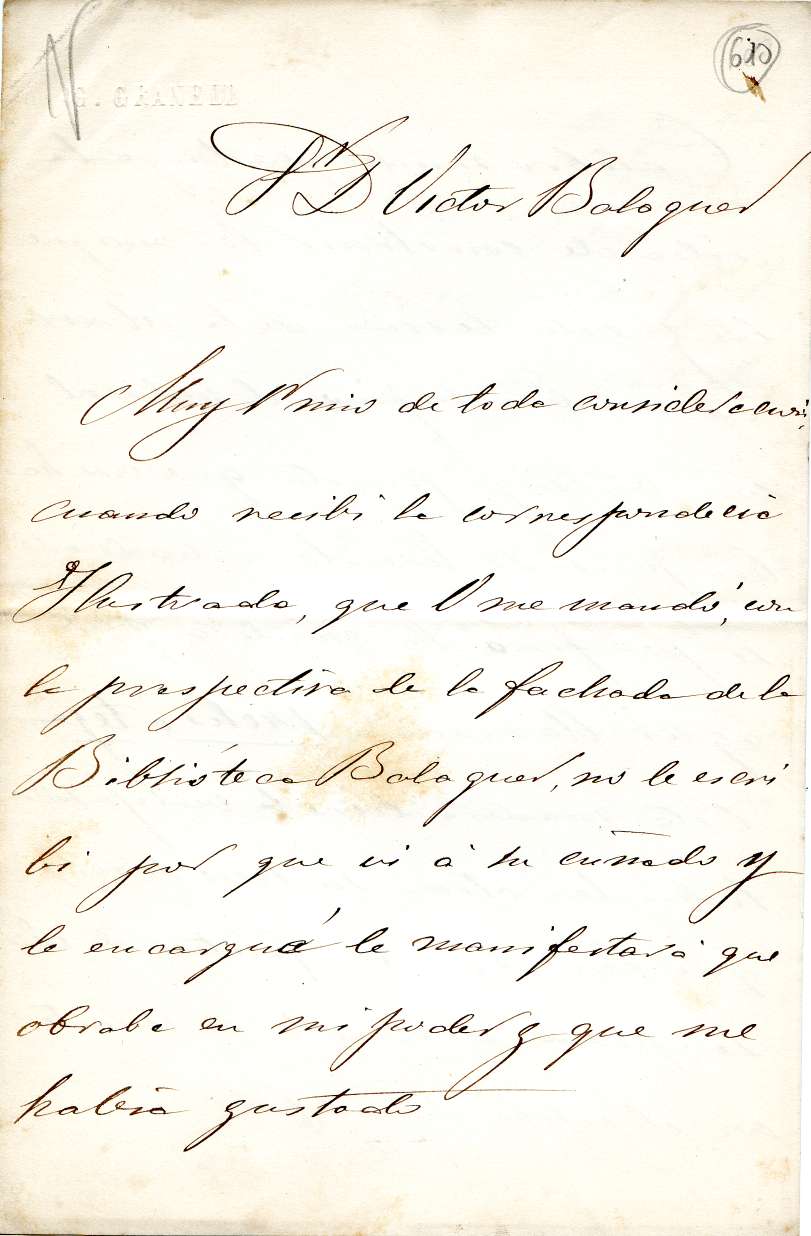 G. GRANELL
610
Sr D Victor Balaguer
Muy Sr mio de toda consideracion,
cuando recibi la correspondecia
Ilustrada, que V me mandó, con
la prespectiva de la fachada de la
Biblióteca Balaguer, no le escri
bi por que vi á su cuñado y
le encargué le manifestará que
obraba en mi poder y que me
habia gustado